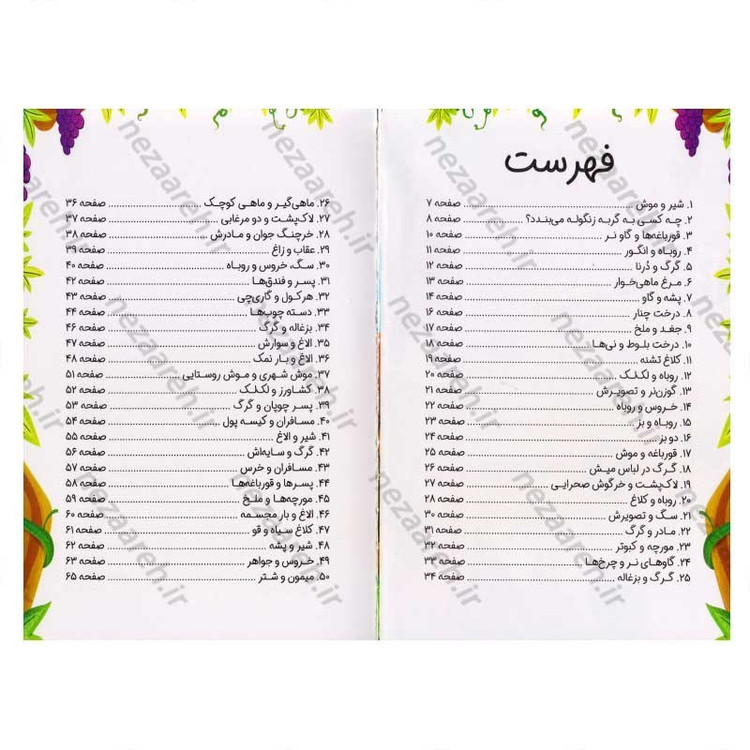 فهرست
۱. شیر و موش ........ صفحه ۷
۲. چه کسی به گربه زنگوله می‌بندد؟ ........ صفحه ۸
۳. قورباغه‌ها و گاو نر ........ صفحه ۱۰
۴. روباه و انگور ........ صفحه ۱۱
۵. گرگ و دُرنا ........ صفحه ۱۲
۶. مرغ ماهی‌خوار ........ صفحه ۱۳
۷. پشه و گاو ........ صفحه ۱۴
۸. درخت چنار ........ صفحه ۱۶
۹. جغد و ملخ ........ صفحه ۱۷
۱۰. درخت بلوط و نی‌ها ........ صفحه ۱۸
۱۱. کلاغ تشنه ........ صفحه ۱۹
۱۲. روباه و لک‌لک ........ صفحه ۲۰
۱۳. گوزن‌نر و تصویرش ........ صفحه ۲۱
۱۴. خروس و روباه ........ صفحه ۲۲
۱۵. روباه و بز ........ صفحه ۲۳
۱۶. دو بز ........ صفحه ۲۴
۱۷. قورباغه و موش ........ صفحه ۲۵
۱۸. گرگ در لباس میش ........ صفحه ۲۶
۱۹. لاک‌پشت و خرگوش صحرایی ........ صفحه ۲۷
۲۰. روباه و کلاغ ........ صفحه ۲۸
۲۱. سگ و تصویرش ........ صفحه ۳۰
۲۲. مادر و گرگ ........ صفحه ۳۱
۲۳. مورچه و کبوتر ........ صفحه ۳۲
۲۴. گاوهای نر و چرخ‌ها ........ صفحه ۳۳
۲۵. گرگ و بزغاله ........ صفحه ۳۴
۲۶. ماهی‌گیر و ماهی کوچک ........ صفحه ۳۶
۲۷. لاک‌پشت و دو مرغابی ........ صفحه ۳۷
۲۸. خرچنگ جوان و مادرش ........ صفحه ۳۸
۲۹. عقاب و زاغ ........ صفحه ۳۹
۳۰. سگ، خروس و روباه ........ صفحه ۴۰
۳۱. پسر و فندق‌ها ........ صفحه ۴۲
۳۲. هرکول و گاری‌چی ........ صفحه ۴۳
۳۳. دسته چوب‌ها ........ صفحه ۴۴
۳۴. بزغاله و گرگ ........ صفحه ۴۶
۳۵. الاغ و سوارش ........ صفحه ۴۷
۳۶. الاغ و بار نمک ........ صفحه ۴۸
۳۷. موش شهری و موش روستایی ........ صفحه ۵۱
۳۸. کشاورز و لک‌لک ........ صفحه ۵۲
۳۹. پسر چوپان و گرگ ........ صفحه ۵۳
۴۰. مسافران و کیسه پول ........ صفحه ۵۴
۴۱. شیر و الاغ ........ صفحه ۵۵
۴۲. گرگ و سایه‌اش ........ صفحه ۵۶
۴۳. مسافران و خرس ........ صفحه ۵۷
۴۴. پسرها و قورباغه‌ها ........ صفحه ۵۸
۴۵. مورچه‌ها و ملخ ........ صفحه ۵۹
۴۶. الاغ و بار مجسمه ........ صفحه ۶۰
۴۷. کلاغ سیاه و قو ........ صفحه ۶۱
۴۸. شیر و پشه ........ صفحه ۶۲
۴۹. خروس و جواهر ........ صفحه ۶۳
۵۰. میمون و شتر ........ صفحه ۶۵
nezaareh.ir